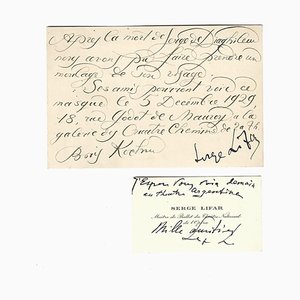 Après la mort de Serge de Diaghilew
nous avons pu faire prendre un
moulage de son visage.
Ses amis pourront voir ce
masque le 5 Décembre 1929
18, rue Godot de Mauroy à la
galerie des Quatre Chemins de
Boris Kochno
Serge Lifar
demain
au théâtre Argentina
SERGE LIFAR
Maître de Ballet du Théâtre National
de l'Opéra
Mille